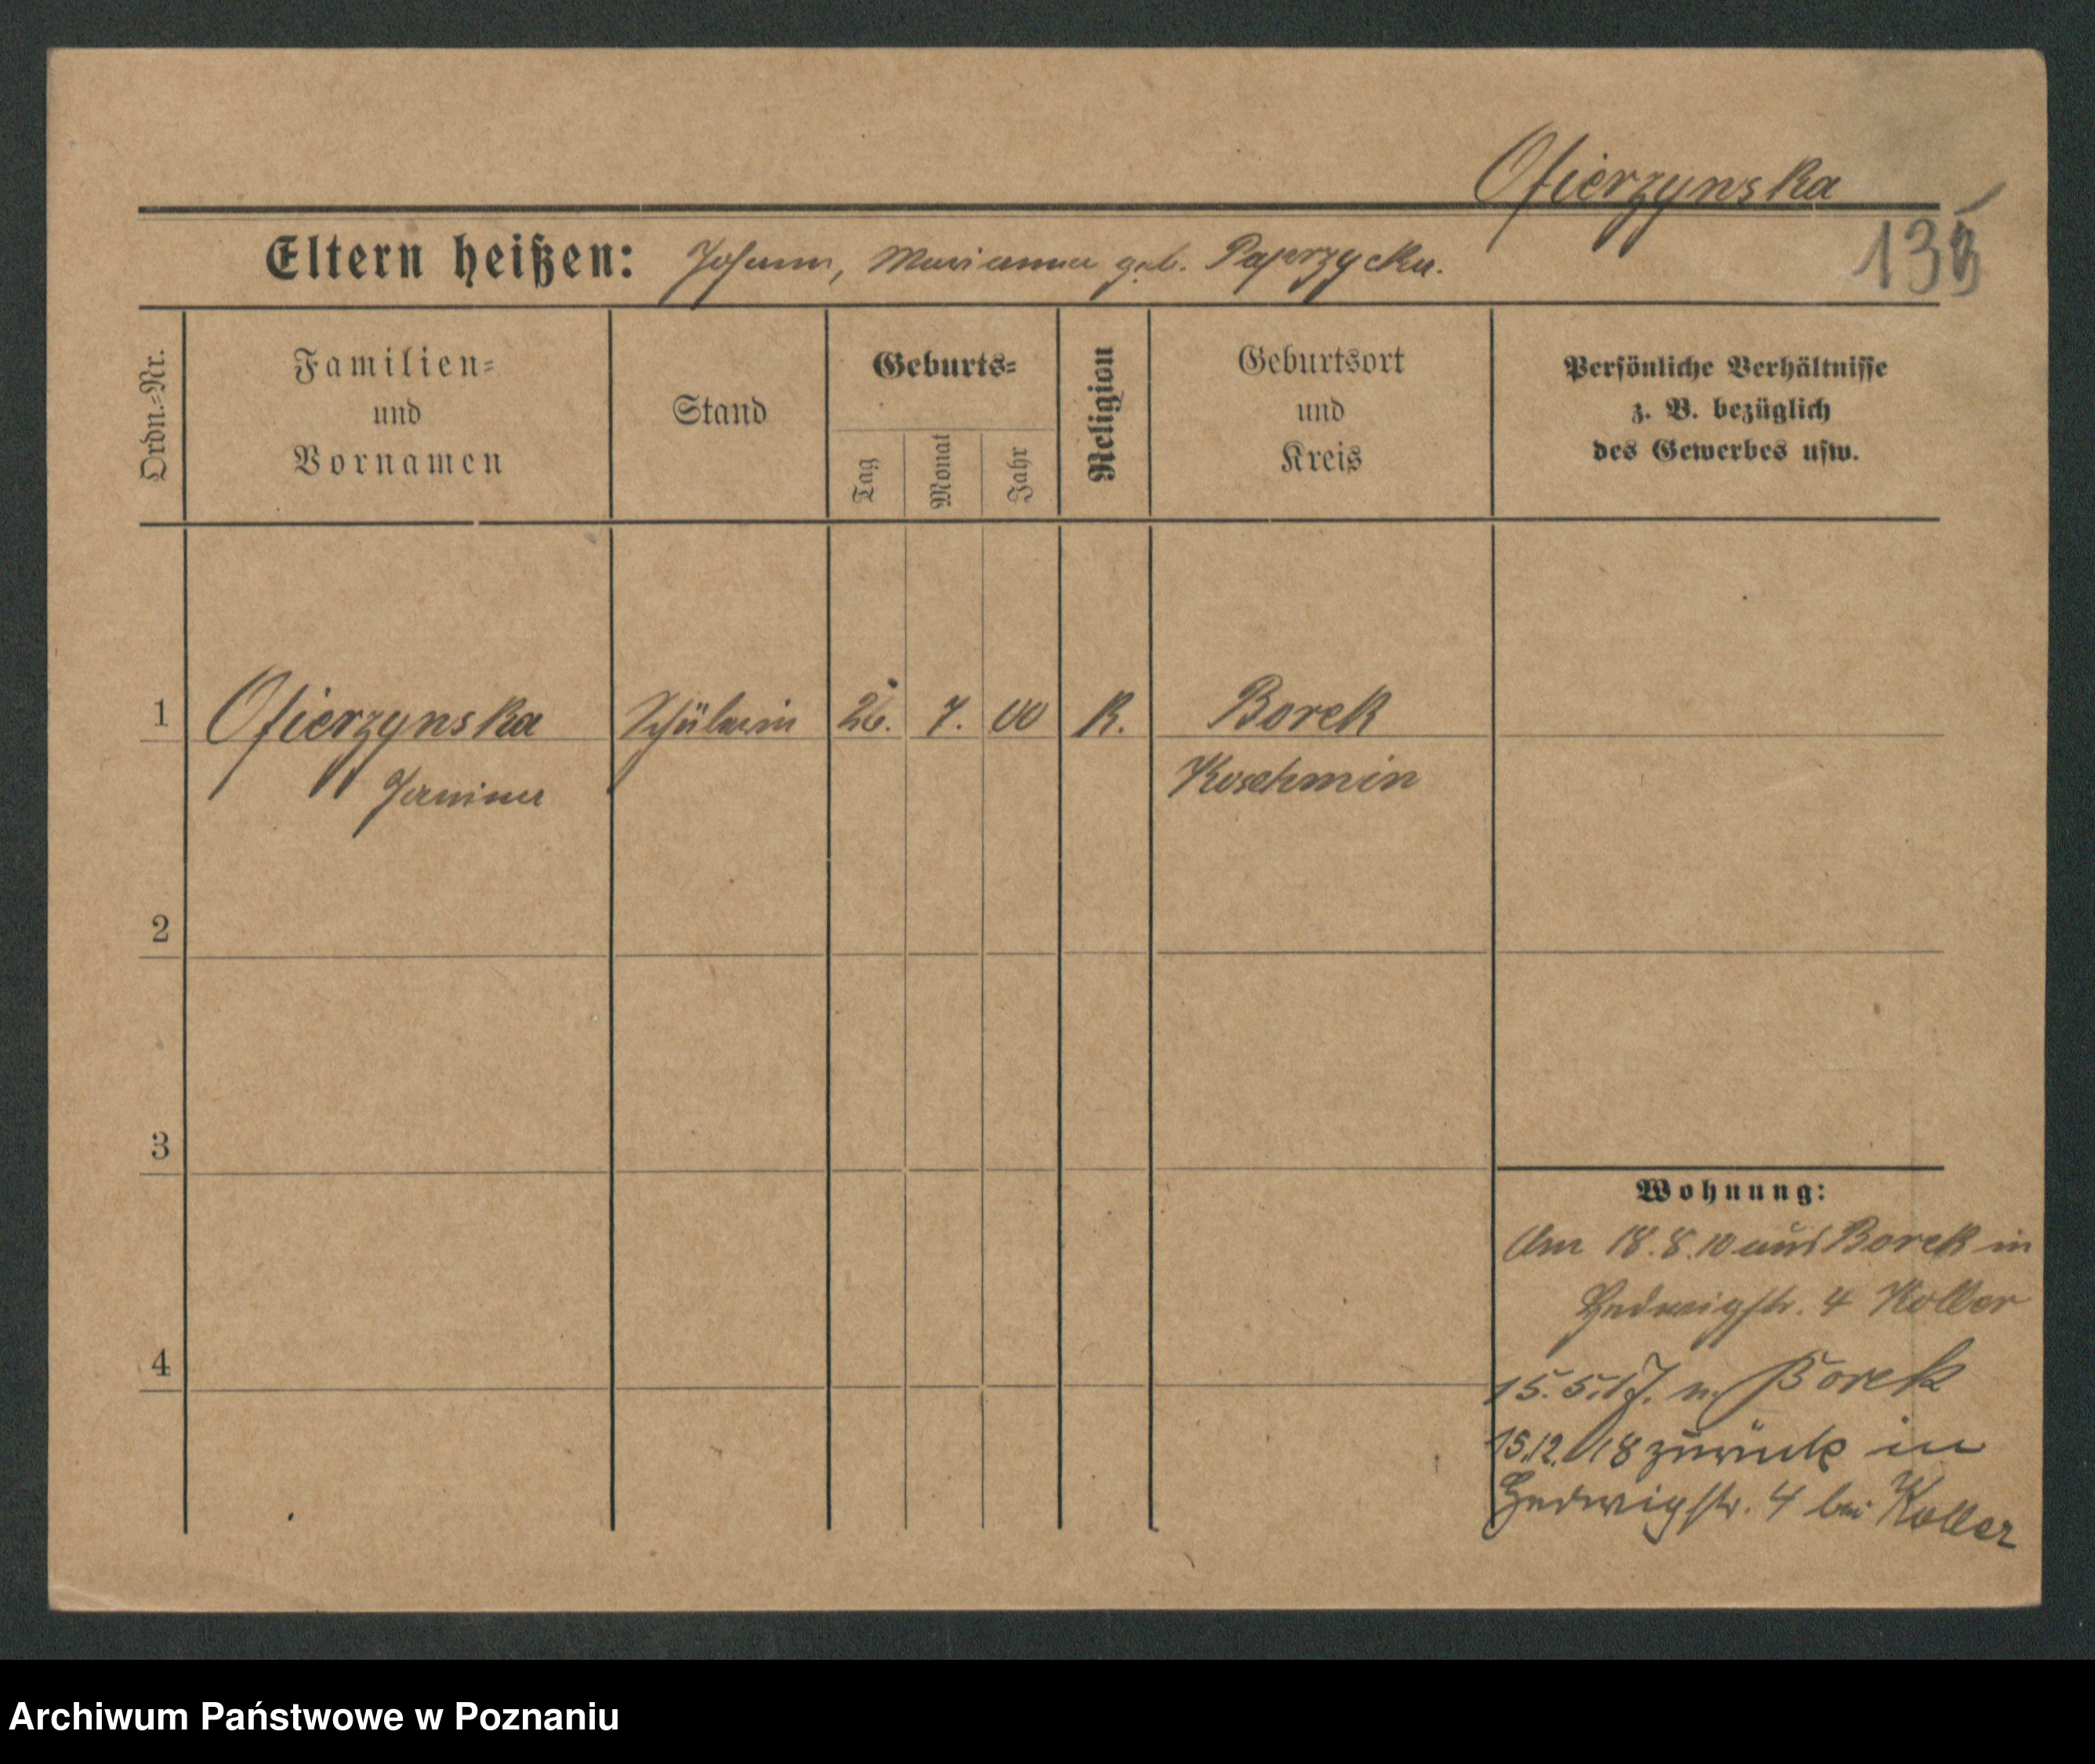 Ofierzynska
135
Eltern heißen: Johann, Marianna geb. Paprzycka.
Ordn.=Nr.
Familien=
und
Vornamen
Stand
Geburts=
Tag
Monat
Jahr
Religion
Geburtsort
und
Kreis
Persönliche Verhältnisse
z. B. bezüglich
des Gewerbes usw.
1 Ofierzynska Schülerin 26. 7. 00 K. Borek
Janina Koschmin
2
3
Wohnung:
Am 18.8.10 aus Borek in
Hedwigstr. 4 Koller
4
15.5.17. n. Borek
15.12.18 zurück in
Hedwigstr. 4 bei Koller
Archiwum Państwowe w Poznaniu